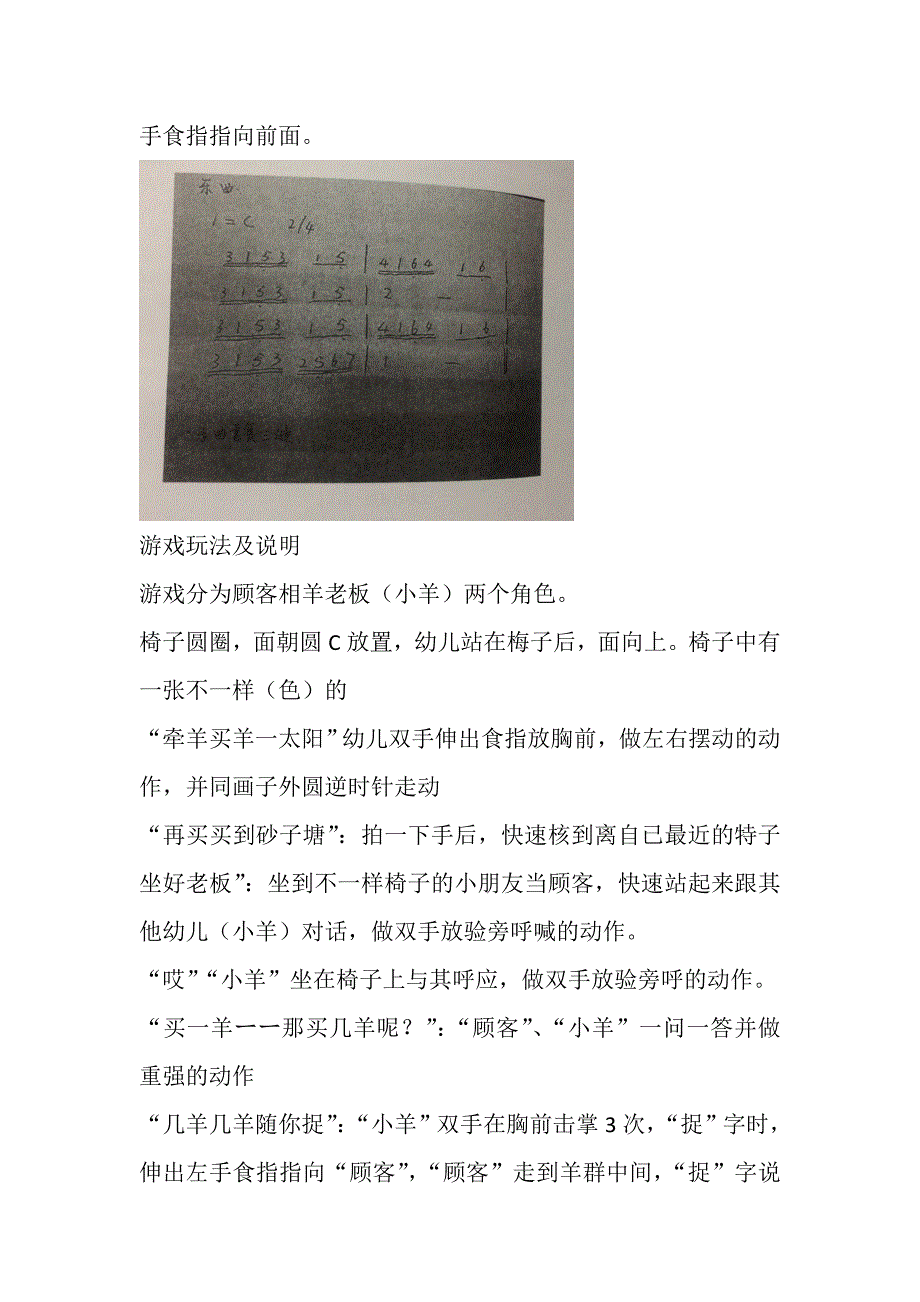 手食指指向前面。
乐曲
1=C 2/4
3153 15 | 4164 16 |
3153 15 | 2 — |
3153 15 | 4164 16 |
3153 2567 | 1 — |
游戏玩法及说明
游戏分为顾客相羊老板（小羊）两个角色。
椅子圆圈，面朝圆 C 放置，幼儿站在梅子后，面向上。椅子中有
一张不一样（色）的
“牵羊买羊一太阳”幼儿双手伸出食指放胸前，做左右摆动的动
作，并同画子外圆逆时针走动
“再买买到砂子塘”：拍一下手后，快速核到离自已最近的特子
坐好老板”：坐到不一样椅子的小朋友当顾客，快速站起来跟其
他幼儿（小羊）对话，做双手放验旁呼喊的动作。
“哎”“小羊”坐在椅子上与其呼应，做双手放验旁呼的动作。
“买一羊一一那买几羊呢？”：“顾客”、“小羊”一问一答并做
重强的动作
“几羊几羊随你捉”：“小羊”双手在胸前击掌 3 次，“捉”字时，
伸出左手食指指向“顾客”，“顾客”走到羊群中间，“捉”字说